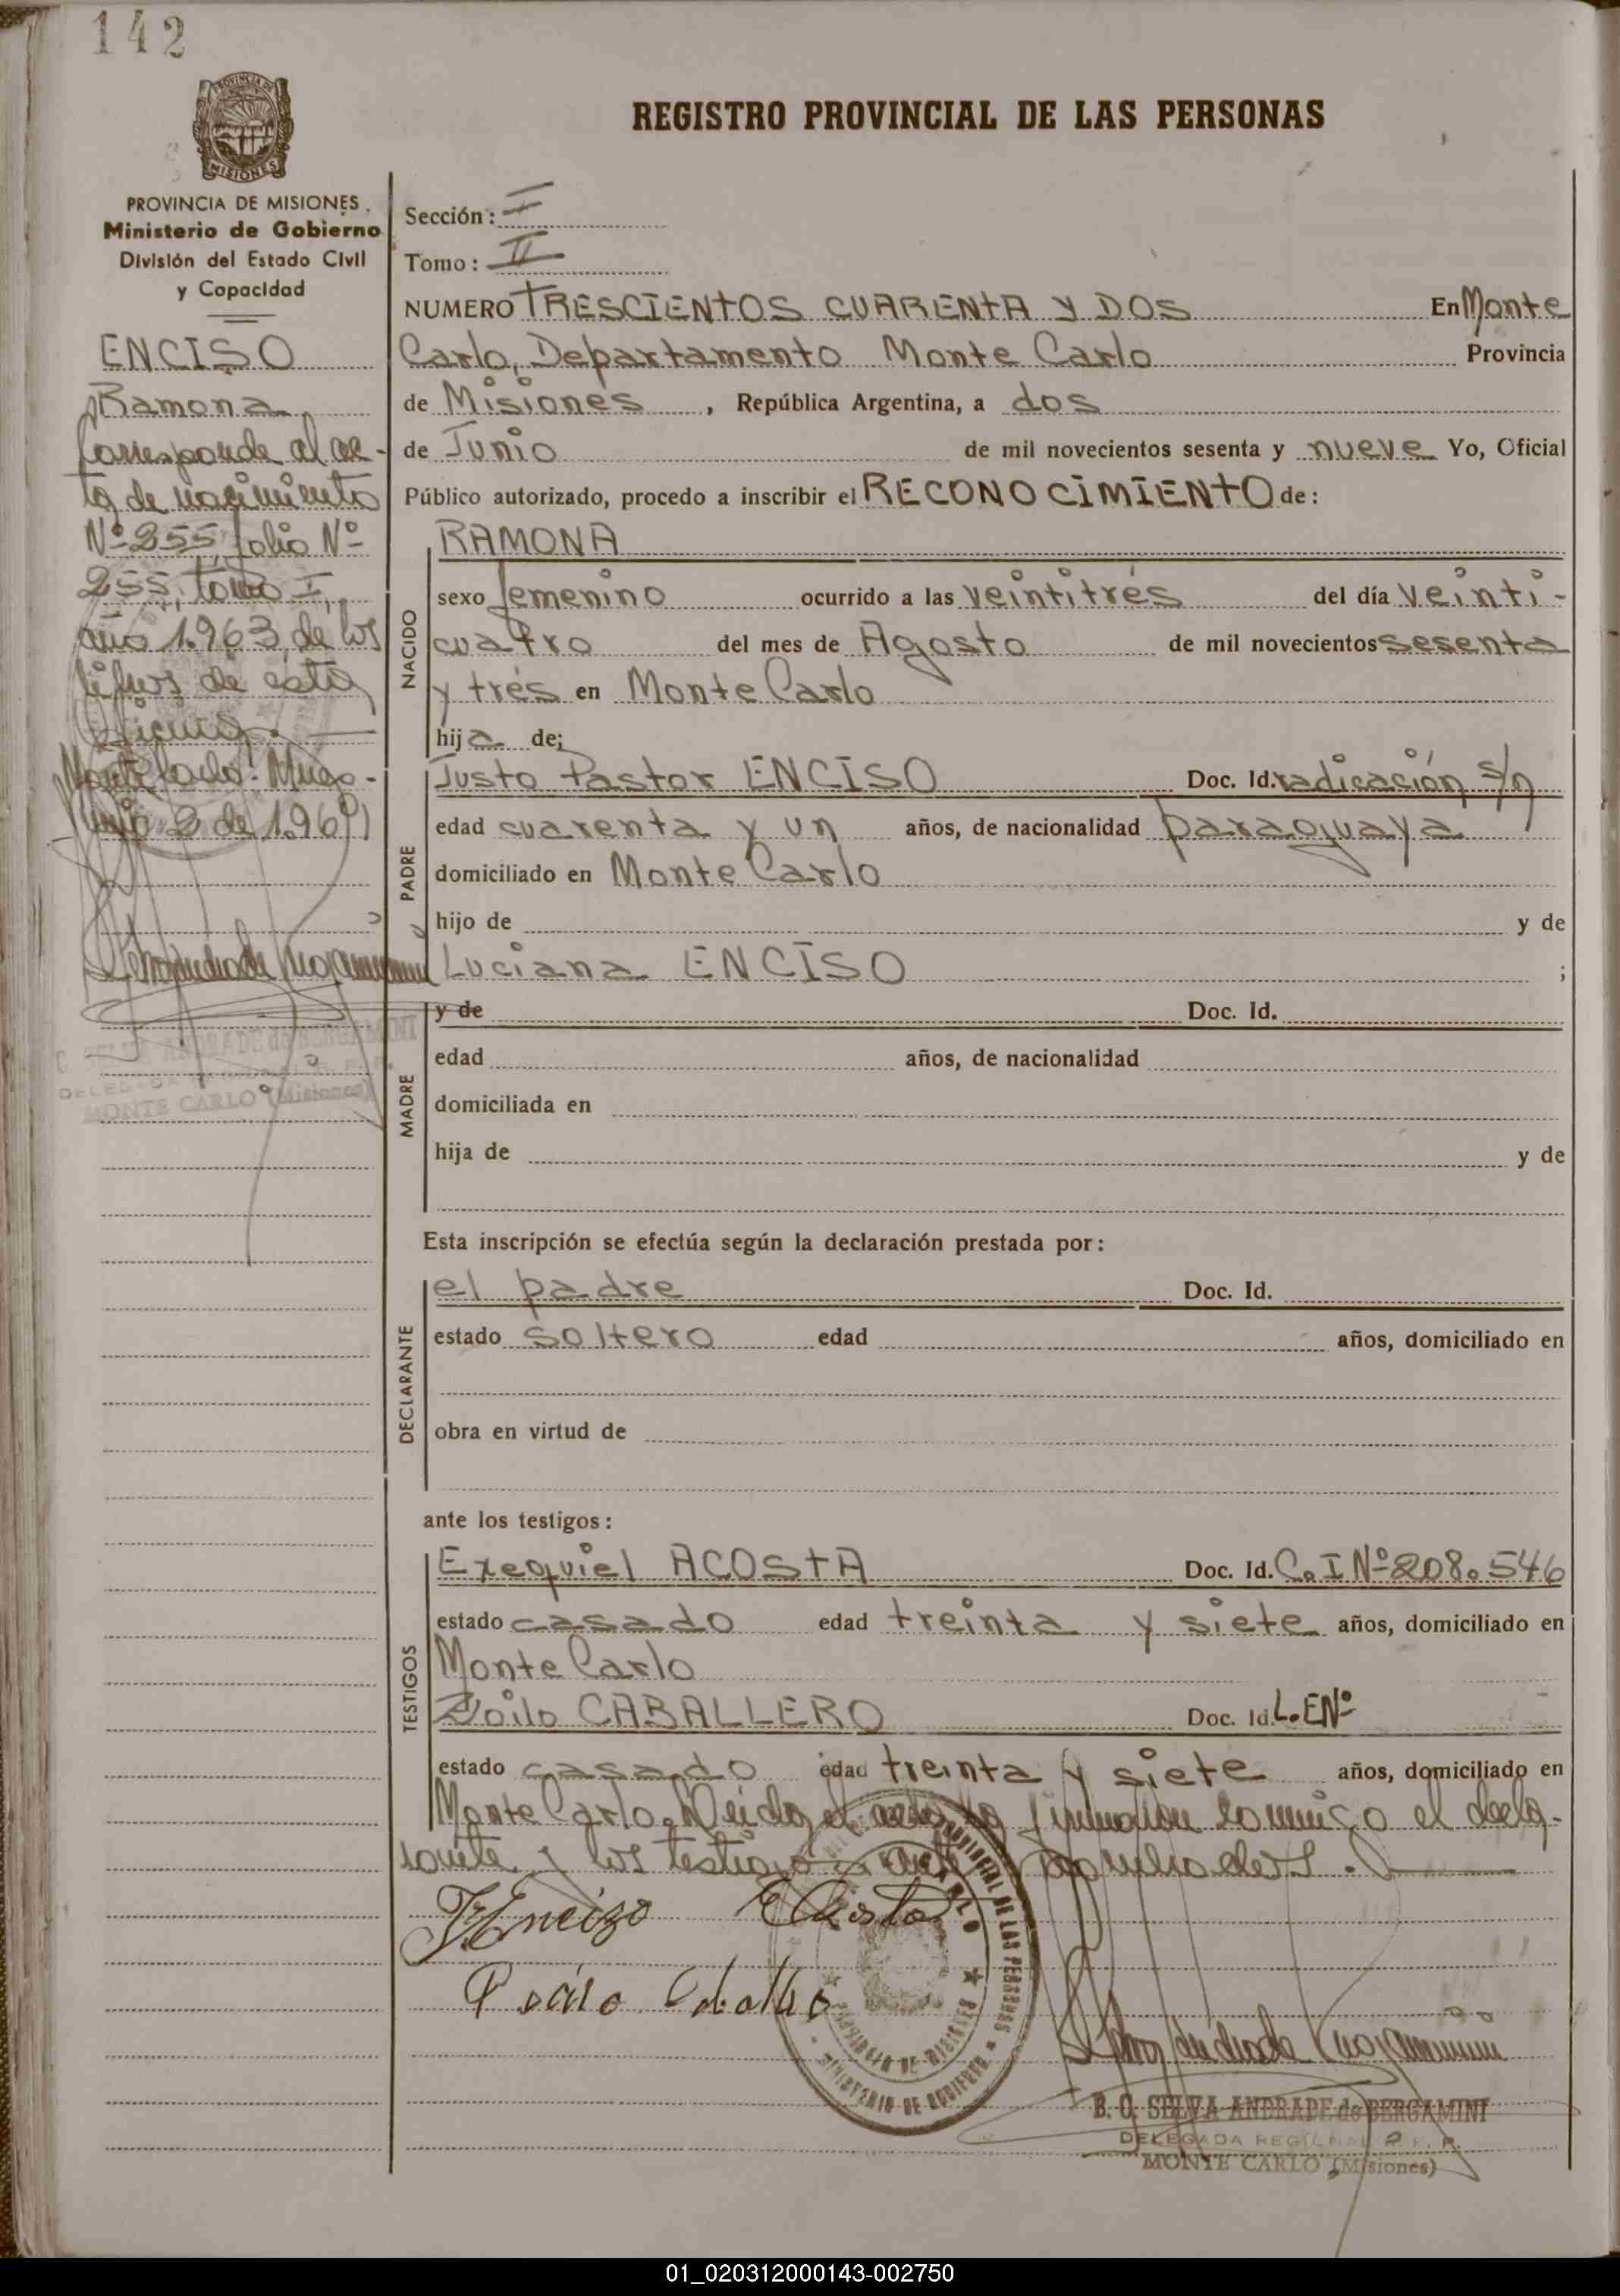 142
PROVINCIA DE MISIONES
REGISTRO PROVINCIAL DE LAS PERSONAS
PROVINCIA DE MISIONES
Ministerio de Gobierno
División del Estado Civil
y Capacidad
ENCISO
Ramona
Corresponde al ac-
ta de nacimiento
Nº 255, folio Nº
255, tomo I,
año 1.963, de los
libros de esta
Oficina.
Monte Carlo: Mnes-
Junio 2 de 1.969
ANDRADE de BERGAMINI
MONTE CARLO (Misiones)
Sección: I
Tomo: II
NUMERO TRESCIENTOS CUARENTA Y DOS En Monte
Carlo, Departamento Monte Carlo Provincia
de Misiones, República Argentina, a dos
de Junio de mil novecientos sesenta y nueve Yo, Oficial
Público autorizado, procedo a inscribir el RECONOCIMIENTO de:
NACIDO
RAMONA
sexo femenino ocurrido a las veintitrés del día veinti-
cuatro del mes de Agosto de mil novecientos sesenta
y trés en Monte Carlo
hija de;
PADRE
Justo Pastor ENCISO Doc. Id. radicación s/n
edad cuarenta y un años, de nacionalidad paraguaya
domiciliado en Monte Carlo
hijo de y de
Luciana ENCISO ;
MADRE
y de Doc. Id.
edad años, de nacionalidad
domiciliada en
hija de y de
Esta inscripción se efectúa según la declaración prestada por:
DECLARANTE
el padre Doc. Id.
estado soltero edad años, domiciliado en
obra en virtud de
ante los testigos:
TESTIGOS
Exequiel ACOSTA Doc. Id. C. I Nº 208.546
estado casado edad treinta y siete años, domiciliado en
Monte Carlo
Zoilo CABALLERO Doc. Id. L.E Nº
estado casado edad treinta y siete años, domiciliado en
Monte Carlo. Leída el acta la firmaron conmigo el decla-
rante y los testigos
JEncizo EAcosta
B. O. SELVA ANDRADE de BERGAMINI
DELEGADA REGIONAL R. P. P.
MONTE CARLO (Misiones)
PROVINCIA DE MISIONES
MINISTERIO DE GOBIERNO
01_020312000143-002750